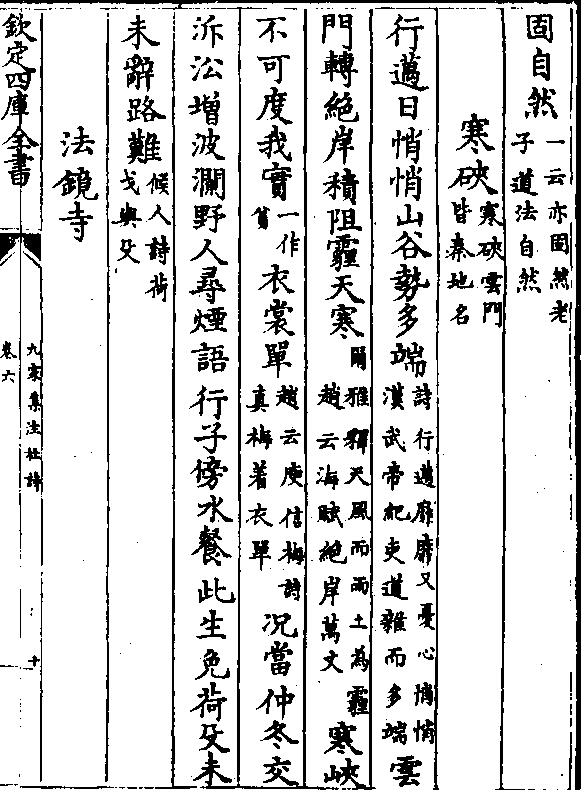 固自然一云亦固然老子道法自然
寒硤寒硤雲門皆秦地名
行邁日悄悄山谷勢多端詩行邁靡靡又憂心悄悄漢武帝紀吏道雜而多端雲
門轉絶岸積阻霾天寒爾雅釋天風而雨土為霾趙云海賦絶岸萬丈寒峽
不可度我實一作貧衣裳單趙云庾信梅詩真梅著衣單况當仲冬交
泝㳂增波瀾野人尋煙語行子傍水餐此生免荷殳未
未辭路難候人詩荷戈與殳
法鏡寺
欽定四庫全書
九家集注杜詩
卷六
十